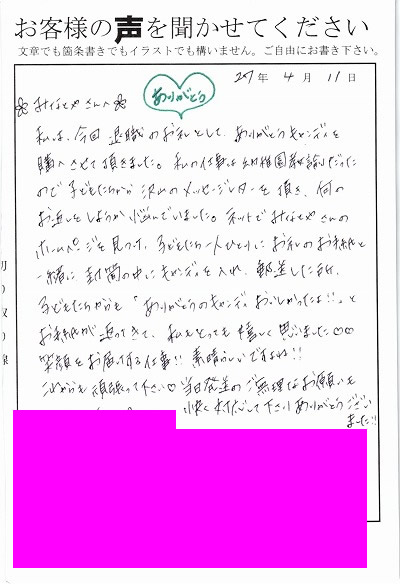 お客様の声を聞かせてください
文章でも箇条書きでもイラストでも構いません。ご自由にお書き下さい。
27年 4月 11日
ありがとう
みなとやさんへ
私は、今回 退職のお礼として、ありがとうキャンディを
購入させて頂きました。私の仕事は幼稚園教諭だった
ので子どもたちから沢山のメッセージレターを頂き、何の
お返しをしようか悩んでいました。ネットでみなとやさんの
ホームページを見つけ、子どもたち一人ひとりにお礼のお手紙と
一緒に封筒の中にキャンディを入れ、郵送した所、
子どもたちからも「ありがとうのキャンディおいしかったよ!!」と
お手紙が返ってきて、私もとっても嬉しく思いました♡♡
笑顔をお届けする仕事!! 素晴らしいですね!!
これからも頑張って下さい♡ 当日発送のご無理なお願いも
快く対応して下さりありがとうござい
ました!!
切り取り線